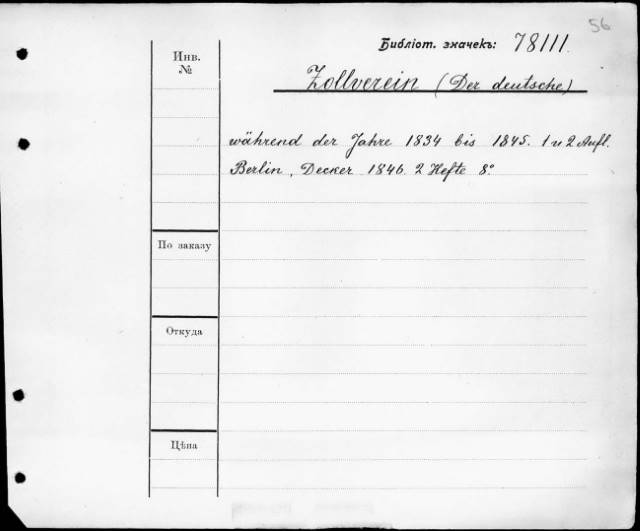 56
Библіот. значекъ: 78111.
Инв.
№
Zollverein (Der deutsche)
während der Jahre 1834 bis 1845. 1 u 2 Aufl.
Berlin, Decker 1846. 2 Hefte 8º
По заказу
Откуда
Цѣна